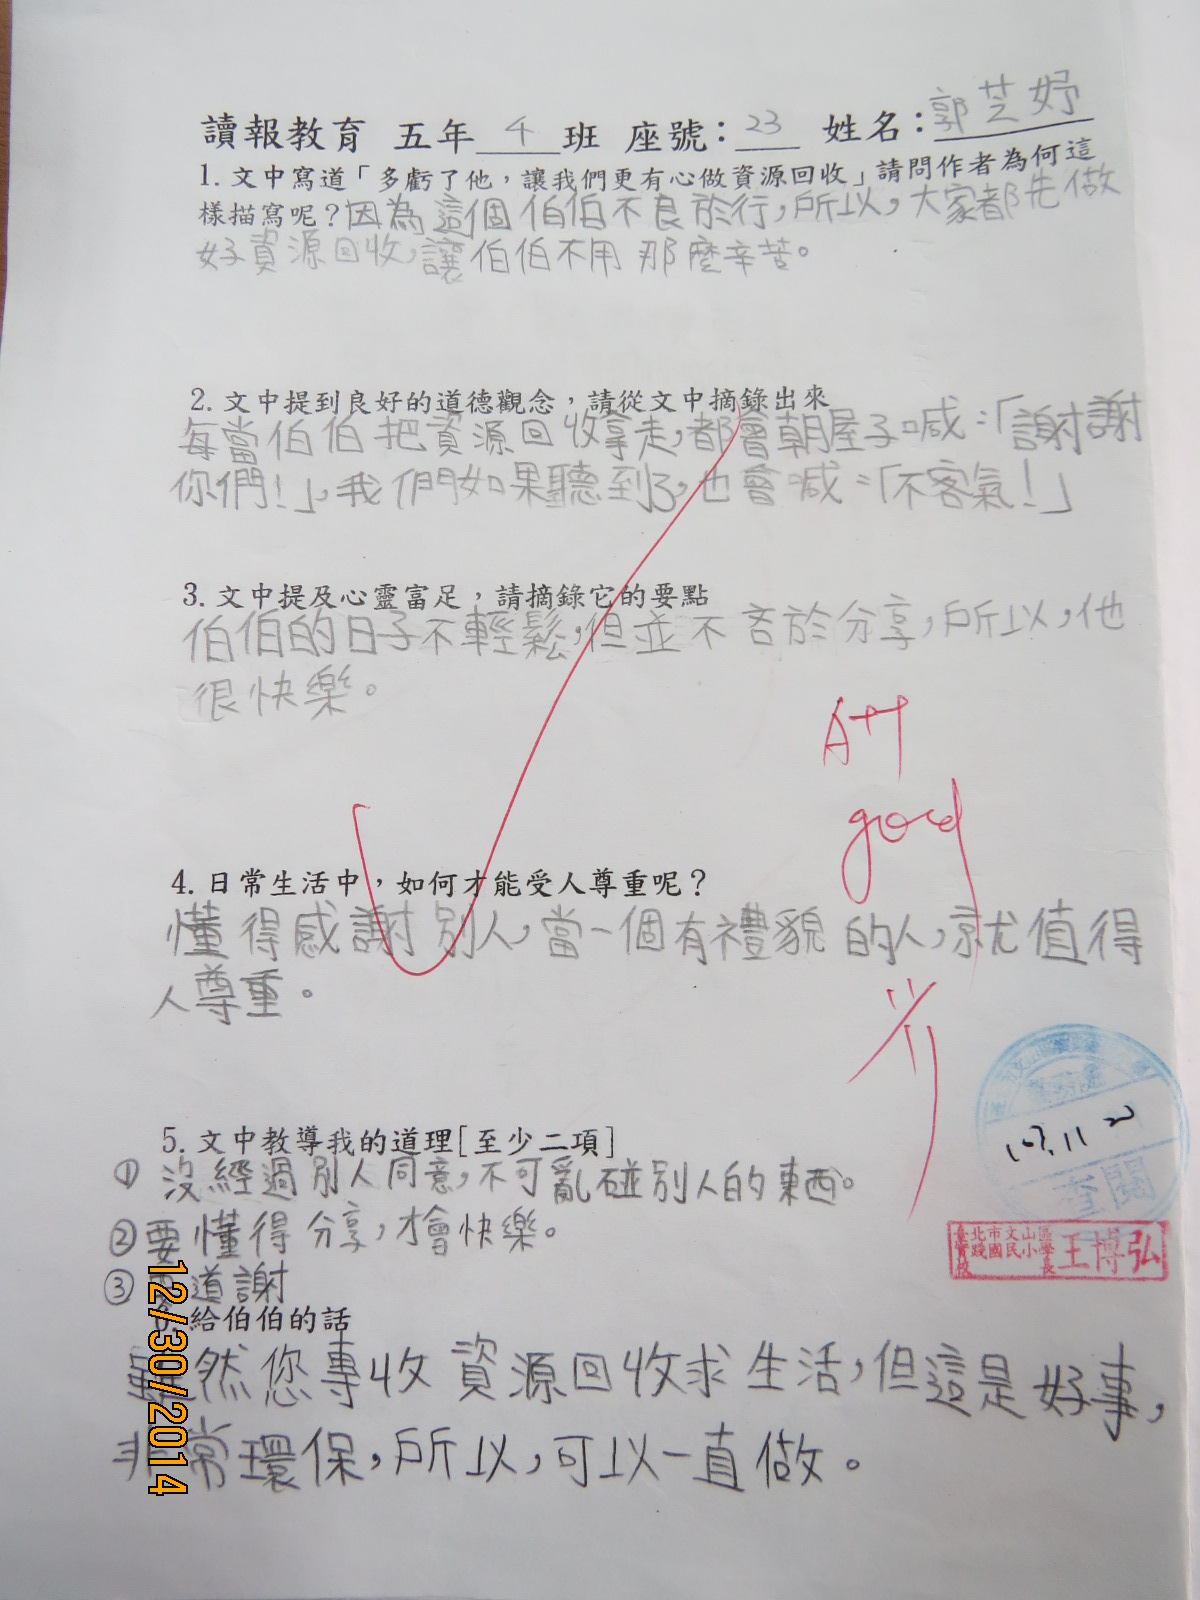 讀報教育 五年 4 班 座號：23 姓名：郭芝妤
1. 文中寫道「多虧了他，讓我們更有心做資源回收」請問作者為何這
樣描寫呢？因為這個伯伯不良於行，所以，大家都先做
好資源回收，讓伯伯不用那麼辛苦。
2. 文中提到良好的道德觀念，請從文中摘錄出來
每當伯伯把資源回收拿走，都會朝屋子喊：「謝謝
你們！」，我們如果聽到了，也會喊：「不客氣！」
3. 文中提及心靈富足，請摘錄它的要點
伯伯的日子不輕鬆，但並不吝於分享，所以，他
很快樂。
A++
good
4. 日常生活中，如何才能受人尊重呢？
懂得感謝別人，當一個有禮貌的人，就值得
人尊重。
5. 文中教導我的道理[至少二項]
① 沒經過別人同意，不可亂碰別人的東西。
② 要懂得分享，才會快樂。
③ 要道謝
6. 給伯伯的話
雖然您專收資源回收求生活，但這是好事，
非常環保，所以，可以一直做。
查閱
臺北市文山區
實踐國民小學
校長
王博弘
12/30/2014